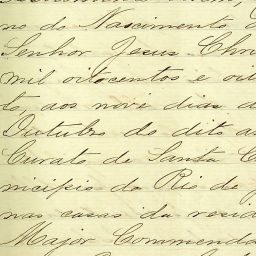 no do Nascimento
Senhor Jesus Chri
mil oitocentos e oit
to, aos nove dias d
Outubro do dito a
Curato de Santa C
nicipio do Rio de J
nas casas da resid
Major Commenda